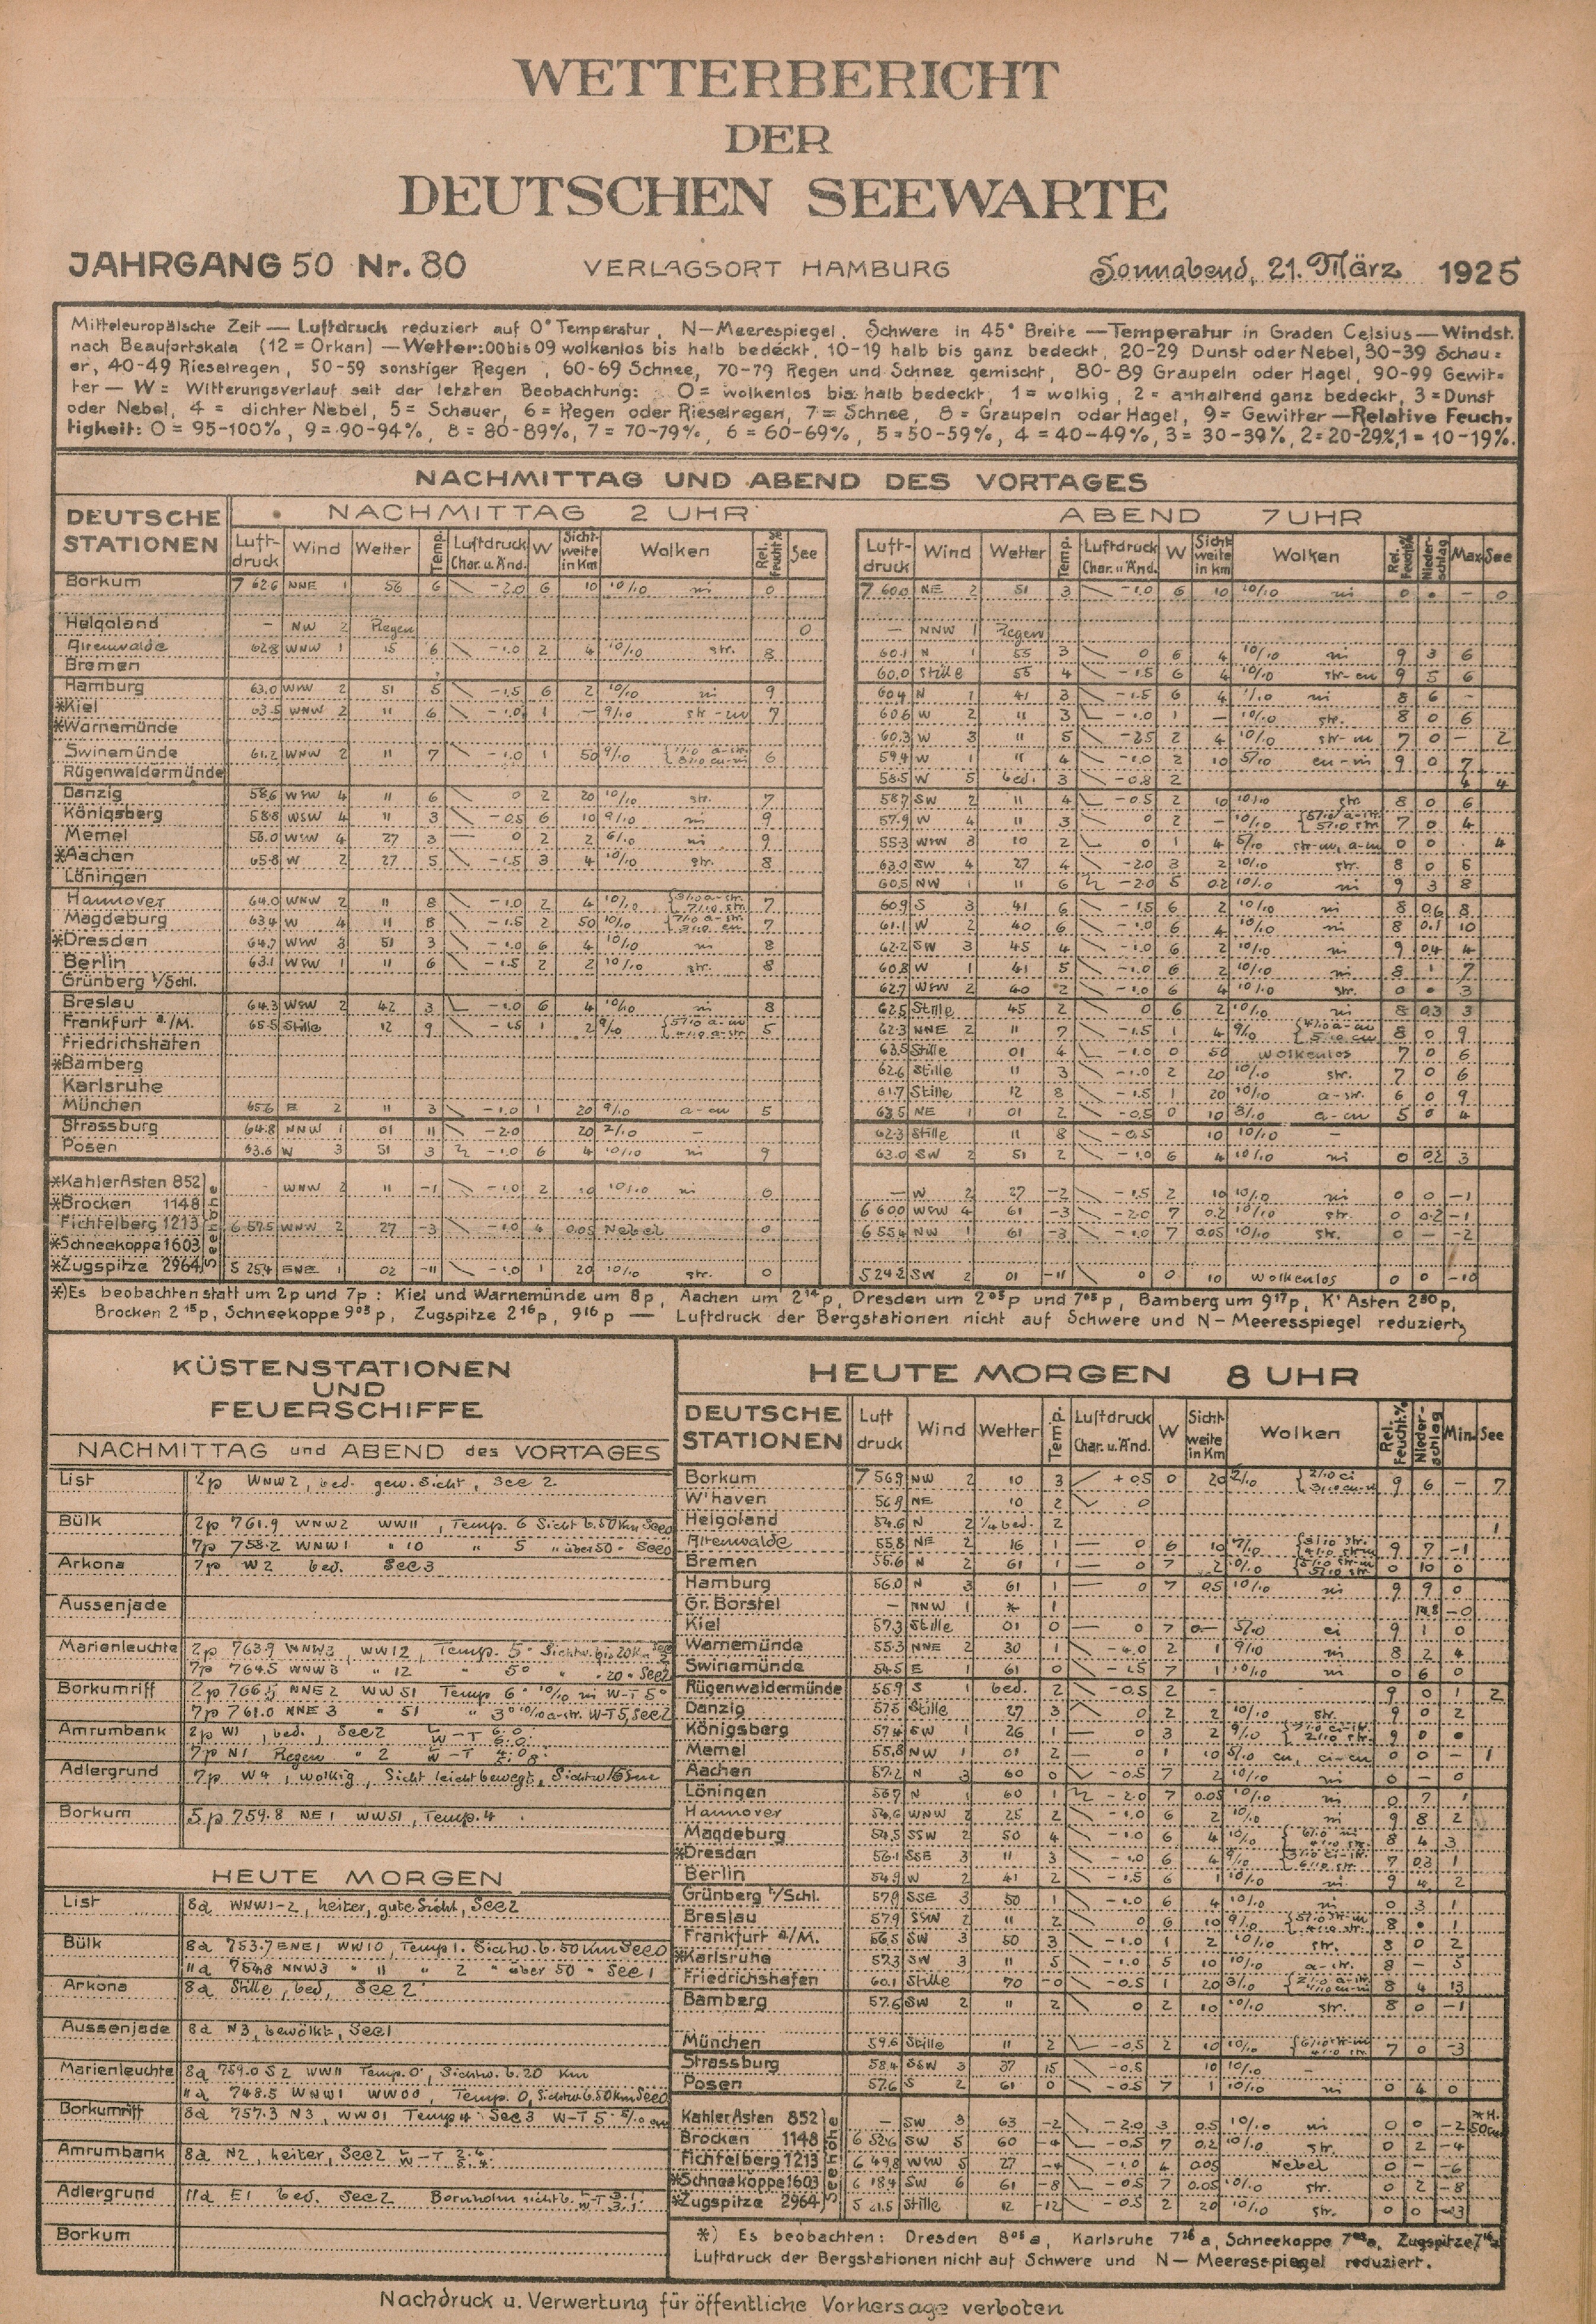 WETTERBERICHT
DER
DEUTSCHEN SEEWARTE
JAHRGANG 50 Nr. 80 VERLAGSORT HAMBURG Sonnabend, 21. März 1925
Mitteleuropäische Zeit — Luftdruck reduziert auf 0° Temperatur, N—Meerespiegel, Schwere in 45° Breite — Temperatur in Graden Celsius — Windst.
nach Beaufortskala (12 = Orkan) — Wetter: 00 bis 09 wolkenlos bis halb bedeckt, 10-19 halb bis ganz bedeckt, 20-29 Dunst oder Nebel, 30-39 Schau=
er, 40-49 Rieselregen, 50-59 sonstiger Regen, 60-69 Schnee, 70-79 Regen und Schnee gemischt, 80-89 Graupeln oder Hagel, 90-99 Gewit=
ter — W = Witterungsverlauf seit der letzten Beobachtung: 0 = wolkenlos bis halb bedeckt, 1 = wolkig, 2 = anhaltend ganz bedeckt, 3 = Dunst
oder Nebel, 4 = dichter Nebel, 5 = Schauer, 6 = Regen oder Rieselregen, 7 = Schnee, 8 = Graupeln oder Hagel, 9 = Gewitter — Relative Feuch=
tigkeit: 0 = 95-100%, 9 = 90-94%, 8 = 80-89%, 7 = 70-79%, 6 = 60-69%, 5 = 50-59%, 4 = 40-49%, 3 = 30-39%, 2 = 20-29%, 1 = 10-19%.
NACHMITTAG UND ABEND DES VORTAGES
DEUTSCHE STATIONEN
NACHMITTAG 2 UHR
Luftdruck Wind Wetter Temp. Luftdruck Char. u. Änd. W Sichtweite in Km Wolken Rel. Feucht.% See
ABEND 7 UHR
Luftdruck Wind Wetter Temp. Luftdruck Char. u. Änd. W Sichtweite in Km Wolken Rel. Feucht.% Niederschlag Max. See
Borkum 7 62.6 NNE 1 56 6 -2.0 6 10 10/10 ni 0 7 60.0 NE 2 51 3 -1.0 6 10 10/10 ni 0 • — 0
Helgoland — NW 2 Regen 0 — NNW 1 Regen
Altenwalde 62.8 WNW 1 15 6 -1.0 2 4 10/10 str. 8 60.1 N 1 55 3 0 6 4 10/10 ni 9 3 6
Bremen 60.0 Stille 55 4 -1.5 6 4 10/10 str-cu 9 5 6
Hamburg 63.0 WNW 2 51 5 -1.5 6 2 10/10 ni 9 60.4 N 1 41 3 -1.5 6 4 ni 8 6 —
*Kiel 63.5 WNW 2 11 6 -1.0 1 — 9/10 str-cu 7 60.6 W 2 11 3 -1.0 1 — 10/10 str. 8 0 6
*Warnemünde 60.3 W 3 11 5 -2.5 2 4 10/10 7 0 — 2
Swinemünde 61.2 WNW 2 11 7 -1.0 1 50 9/10 6 59.4 W 1 11 4 -1.0 2 10 5/10 cu-ni 9 0 7
Rügenwaldermünde 58.5 W 5 bed. 3 -0.8 2 4 4
Danzig 58.6 WSW 4 11 6 0 2 20 10/10 str. 7 58.7 SW 2 11 4 -0.5 2 10 10/10 str. 8 0 6
Königsberg 58.8 WSW 4 11 3 -0.5 6 10 9/10 ni 9 57.9 W 4 11 3 0 2 — 10/10 7 0 4
Memel 56.0 WSW 4 27 3 0 2 2 6/10 ni 9 55.3 WNW 3 10 2 0 1 4 5/10 0 0 4
*Aachen 65.8 W 2 27 5 -1.5 3 4 10/10 str. 8 63.0 SW 4 27 4 -2.0 3 2 10/10 str. 8 0 5
Löningen 60.5 NW 1 11 6 -2.0 5 0.2 10/10 ni 9 3 8
Hannover 64.0 WNW 2 11 8 -1.0 2 4 10/10 7 60.9 S 3 41 6 -1.5 6 2 10/10 ni 8 0.6 8
Magdeburg 63.4 W 4 11 8 -1.5 2 50 10/10 7 61.1 W 2 40 6 -1.0 6 4 10/10 ni 8 0.1 10
*Dresden 64.7 WNW 3 51 3 -1.0 6 4 10/10 ni 8 62.2 SW 3 45 4 -1.0 6 2 10/10 ni 9 0.4 4
Berlin 63.1 WSW 1 11 6 -1.5 2 2 10/10 str. 8 60.8 W 1 41 5 -1.0 6 2 10/10 ni 8 1 7
Grünberg i/Schl. 62.7 WSW 2 40 2 -1.0 6 4 10/10 str. 0 • 3
Breslau 64.3 WSW 2 42 3 -1.0 6 4 10/10 ni 8 62.5 Stille 45 2 0 6 2 10/10 ni 8 0.3 3
Frankfurt a./M. 65.5 Stille 12 9 -1.5 1 2 9/10 5 62.3 NNE 2 11 7 -1.5 1 4 9/10 8 0 9
Friedrichshafen 63.5 Stille 01 4 -1.0 0 50 wolkenlos 7 0 6
*Bamberg 62.6 Stille 11 3 -1.0 2 20 10/10 str. 7 0 6
Karlsruhe 61.7 Stille 12 8 -1.5 1 20 10/10 a-str. 6 0 9
München 65.6 E 2 11 3 -1.0 1 20 9/10 a-cu 5 63.5 NE 1 01 2 -0.5 0 10 3/10 a-cu 5 0 4
Strassburg 64.8 NNW 1 01 11 -2.0 20 2/10 — 62.3 Stille 11 8 -0.5 10 10/10 —
Posen 63.6 W 3 51 3 -1.0 6 4 10/10 ni 9 63.0 SW 2 51 2 -1.0 6 4 10/10 ni 0 0.2 3
Seehöhe
*Kahler Asten 852 - WNW 2 11 -1 -1.0 2 10 10/10 ni 6 — W 2 27 -2 -1.5 2 10 10/10 ni 0 0 -1
*Brocken 1148 6 60.0 WSW 4 61 -3 -2.0 7 0.2 10/10 str. 0 0.2 -1
Fichtelberg 1213 6 57.5 WNW 2 27 -3 -1.0 4 0.05 Nebel 0 6 55.4 NW 1 61 -3 -1.0 7 0.05 10/10 str. 0 — -2
*Schneekoppe 1603
*Zugspitze 2964 5 25.4 ENE 1 02 -11 -1.0 1 20 10/10 str. 0 5 24.2 SW 2 01 -11 0 0 10 wolkenlos 0 0 -10
*) Es beobachten statt um 2p und 7p: Kiel und Warnemünde um 8p, Aachen um 2¹⁴p, Dresden um 2⁰⁵p und 7⁰⁵p, Bamberg um 9¹⁷p, K' Asten 2³⁰p,
Brocken 2¹⁵p, Schneekoppe 9⁰³p, Zugspitze 2¹⁶p, 9¹⁶p — Luftdruck der Bergstationen nicht auf Schwere und N—Meeresspiegel reduziert,
KÜSTENSTATIONEN
UND
FEUERSCHIFFE
NACHMITTAG und ABEND des VORTAGES
List 2p WNW2, bed. gew. Sicht, See 2.
Bülk 2p 761.9 WNW2 WW11, Temp. 6 Sicht b. 50 Km See0
7p 758.2 WNW1 " 10 " 5 " über 50 " See0
Arkona 7p W2 bed. See3
Aussenjade
Marienleuchte 2p 763.9 WNW3, WW12, Temp. 5° Sichtw. bis 20 Km
7p 764.5 WNW3 " 12 " 5° " " 20 " See2
Borkumriff 2p NNE2 WW51 Temp 6° 10/10 ni W-T 5°
7p 761.0 NNE 3 " 51 " 3° 10/10 a-str. W-T 5, See2
Amrumbank 2p W1, bed., See2
7p N1 Regen " 2
Adlergrund 7p W4, wolkig, Sicht leicht bewegt,
Borkum 5p 759.8 NE1 WW51, Temp. 4
HEUTE MORGEN
List 8a WNW1-2, heiter, gute Sicht, See2
Bülk 8a 753.7 ENE1 WW10, Temp 1. Sichtw. b. 50 Km See0
11a 754.8 NNW3 " 11 " 2 " über 50 " See1
Arkona 8a Stille, bed, See2
Aussenjade 8a N3, bewölkt, See1
Marienleuchte 8a 759.0 S2 WW11 Temp. 0°, Sichtw. b. 20 Km
11a 748.5 WNW1 WW00, Temp. 0, Sichtw. b. 50 Km See0
Borkumriff 8a 757.3 N3, WW01 Temp 4° See3 W-T 5°
Amrumbank 8a N2, heiter, See2
Adlergrund 11a E1 bed. See2 Bornholm sichtb.
Borkum
HEUTE MORGEN 8 UHR
DEUTSCHE STATIONEN Luftdruck Wind Wetter Temp. Luftdruck Char. u. Änd. W Sichtweite in Km Wolken Rel. Feucht.% Niederschlag Min. See
Borkum 7 56.9 NW 2 10 3 +0.5 0 20 9 6 — 7
W'haven 56.9 NE 10 2 0
Helgoland 54.6 N 2 ¼ bed. 2 1
Altenwalde 55.8 NE 2 16 1 0 6 10 9 7 -1
Bremen 56.6 N 2 61 1 0 7 2 0 10 0
Hamburg 56.0 N 3 61 1 0 7 0.5 10/10 ni 9 9 0
Gr. Borstel — NNW 1 * 1 14.8 -0
Kiel 57.3 Stille 01 0 0 7 ci 9 1 0
Warnemünde 55.3 NNE 2 30 1 -4.0 2 1 9/10 ni 8 2 4
Swinemünde 54.5 E 1 61 0 -1.5 7 1 10/10 ni 0 6 0
Rügenwaldermünde 55.9 S 1 bed. 2 -0.5 2 - 9 0 1 2
Danzig 57.5 Stille 27 3 0 2 2 10/10 str. 9 0 2
Königsberg 57.4 SW 1 26 1 0 3 2 9/10 9 0 •
Memel 55.8 NW 1 01 2 0 1 10 5/10 cu, ci-cu 0 0 — 1
Aachen 57.2 N 3 60 0 -0.5 7 2 10/10 ni 0 — 0
Löningen N 1 60 1 -2.0 7 0.05 10/10 ni 0 7 1
Hannover 54.6 WNW 2 25 2 -1.0 6 2 10/10 ni 9 8 2
Magdeburg 54.5 SSW 2 50 4 -1.0 6 4 10/10 8 4 3
*Dresden 56.1 SSE 3 11 3 -1.0 6 4 9/10 7 0.3 1
Berlin 54.9 W 2 41 2 -1.5 6 1 10/10 ni 9 4 2
Grünberg i/Schl. 57.9 SSE 3 50 1 -1.0 6 4 10/10 ni 0 3 1
Breslau 57.9 SSW 2 11 2 0 6 10 9/10 8 • 1
Frankfurt a/M. 56.5 SW 3 50 3 -1.0 1 2 10/10 str. 8 0 2
*Karlsruhe 57.3 SW 3 11 5 -1.0 5 10 10/10 a-str. 8 — 3
Friedrichshafen 60.1 Stille 70 -0 -0.5 1 20 8 4
Bamberg 57.6 SW 2 11 2 0 2 10 10/10 str. 8 0 -1
München 59.6 Stille 11 2 -0.5 2 10 10/10 7 0 -3
Strassburg 58.4 SSW 3 37 15 -0.5 10 10/10 -
Posen 57.6 S 2 61 0 -0.5 7 1 10/10 ni 0 4 0
Seehöhe
Kahler Asten 852 — SW 3 63 -2 -2.0 3 0.5 10/10 ni 0 0 -2
Brocken 1148 6 52.6 SW 5 60 -4 -0.5 7 0.2 10/10 str. 0 2 -4
Fichtelberg 1213 6 49.8 WSW 5 27 -4 -1.0 4 0.05 Nebel 0 — -6
*Schneekoppe 1603 6 18.4 SW 6 61 -8 -0.5 7 0.05 10/10 str. 0 2 -8
*Zugspitze 2964 5 21.5 Stille 12 -12 -0.5 2 20 10/10 str. 0 0 -13
*) Es beobachten: Dresden 8⁰⁵a, Karlsruhe 7²⁶a, Schneekoppe 7⁰³a, Zugspitze 7¹⁶a
Luftdruck der Bergstationen nicht auf Schwere und N—Meeresspiegel reduziert.
Nachdruck u. Verwertung für öffentliche Vorhersage verboten